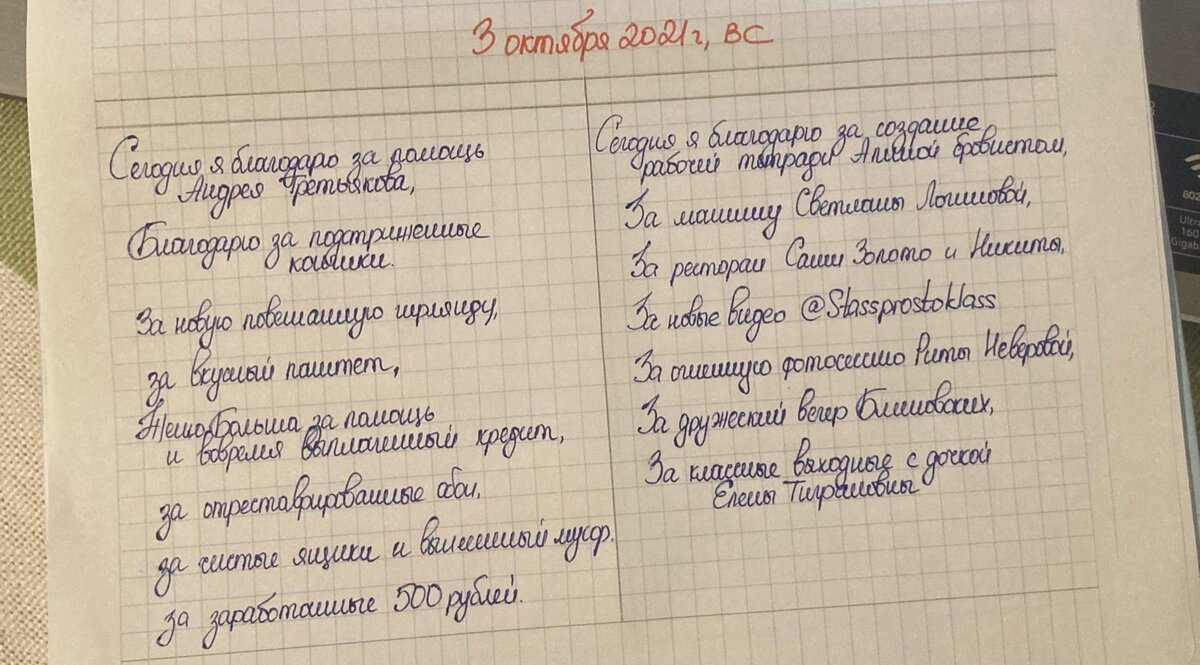 3 октября 2021г, ВС
Сегодня я благодарю за помощь
Андрея Третьякова,
Благодарю за подстриженные
коньчики.
За новую повешанную гирлянду,
за вкусный паштет,
Жено Больша за помощь
и вовремя выплаченный кредит,
за отреставрированные обои,
за чистые ящики и вынесенный мусор.
за заработанные 500 рублей.
Сегодня я благодарю за создание
рабочей тетради Алиной бровистом,
За машину Светланы Логиновой,
За ресторан Саши Золото и Никиты,
За новые видео @Stassprostoklass
За огненную фотосессию Риты Неверовой,
За дружеский вечер Блиновских,
За классные выходные с дочкой
Елены Тиграновны
802
Ultra
160
Gigab